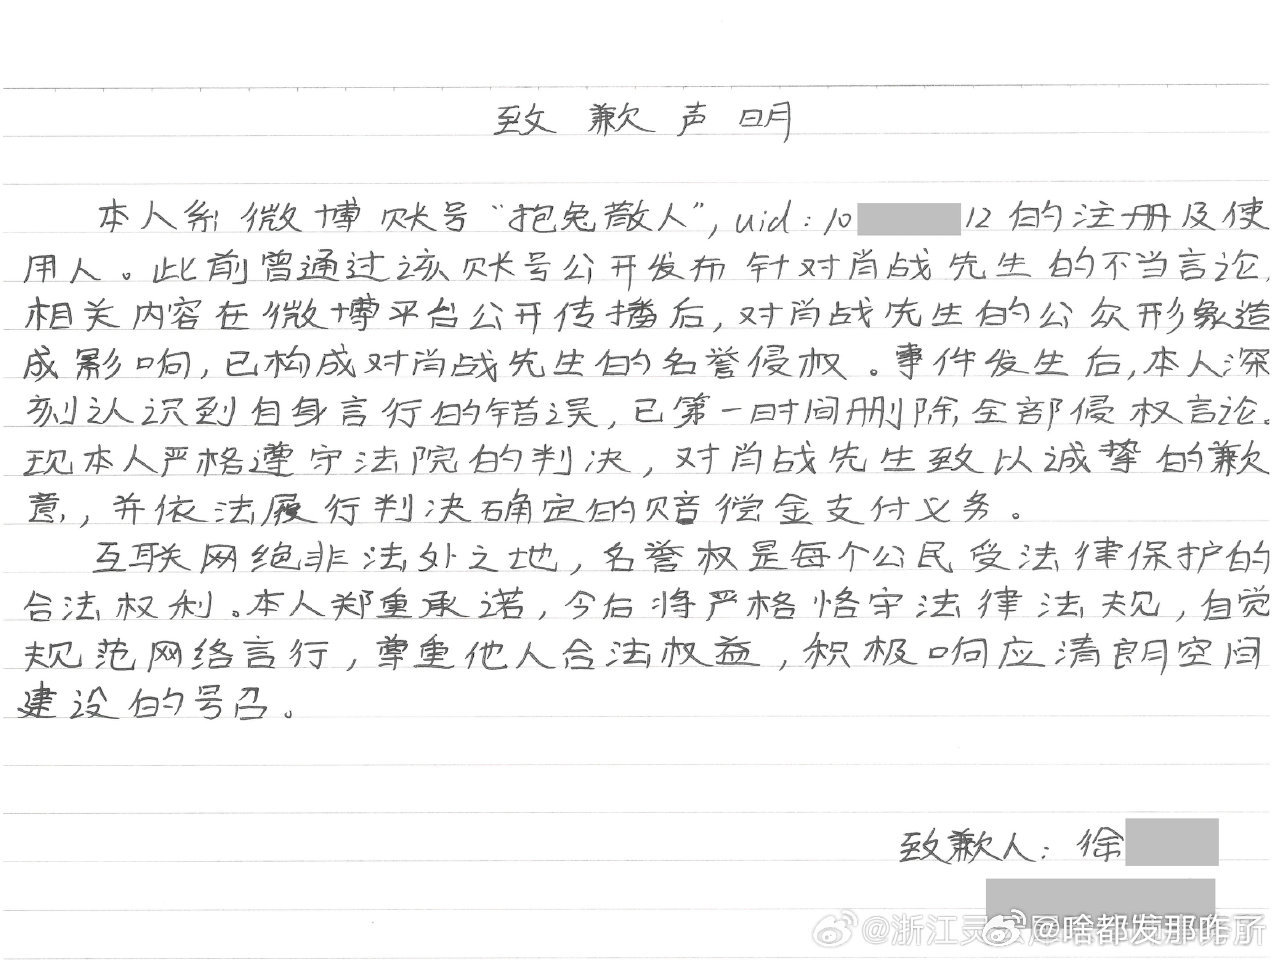 致歉声明
本人系微博账号“抱兔散人”，uid：10 12的注册及使
用人。此前曾通过该账号公开发布针对肖战先生的不当言论，
相关内容在微博平台公开传播后，对肖战先生的公众形象造
成影响，已构成对肖战先生的名誉侵权。事件发生后，本人深
刻认识到自身言行的错误，已第一时间删除全部侵权言论。
现本人严格遵守法院的判决，对肖战先生致以诚挚的歉
意，并依法履行判决确定的赔偿金支付义务。
互联网绝非法外之地，名誉权是每个公民受法律保护的
合法权利。本人郑重承诺，今后将严格恪守法律法规，自觉
规范网络言行，尊重他人合法权益，积极响应清朗空间
建设的号召。
致歉人：徐
@浙江灵 @啥都发那咋了